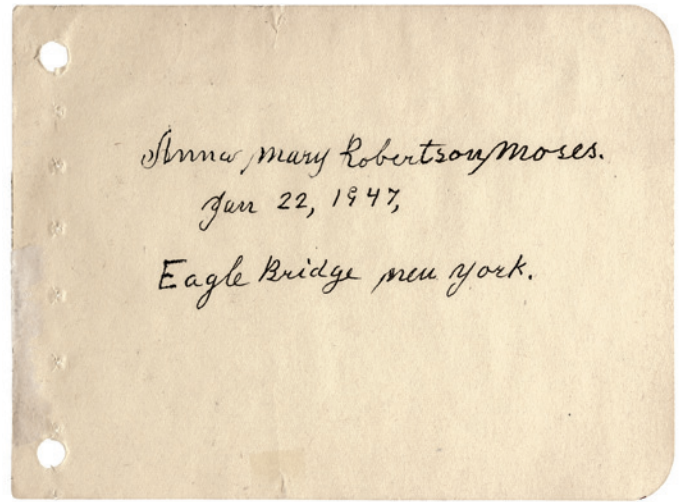 Anna Mary Robertson Moses.
Jan 22, 1947,
Eagle Bridge New York.